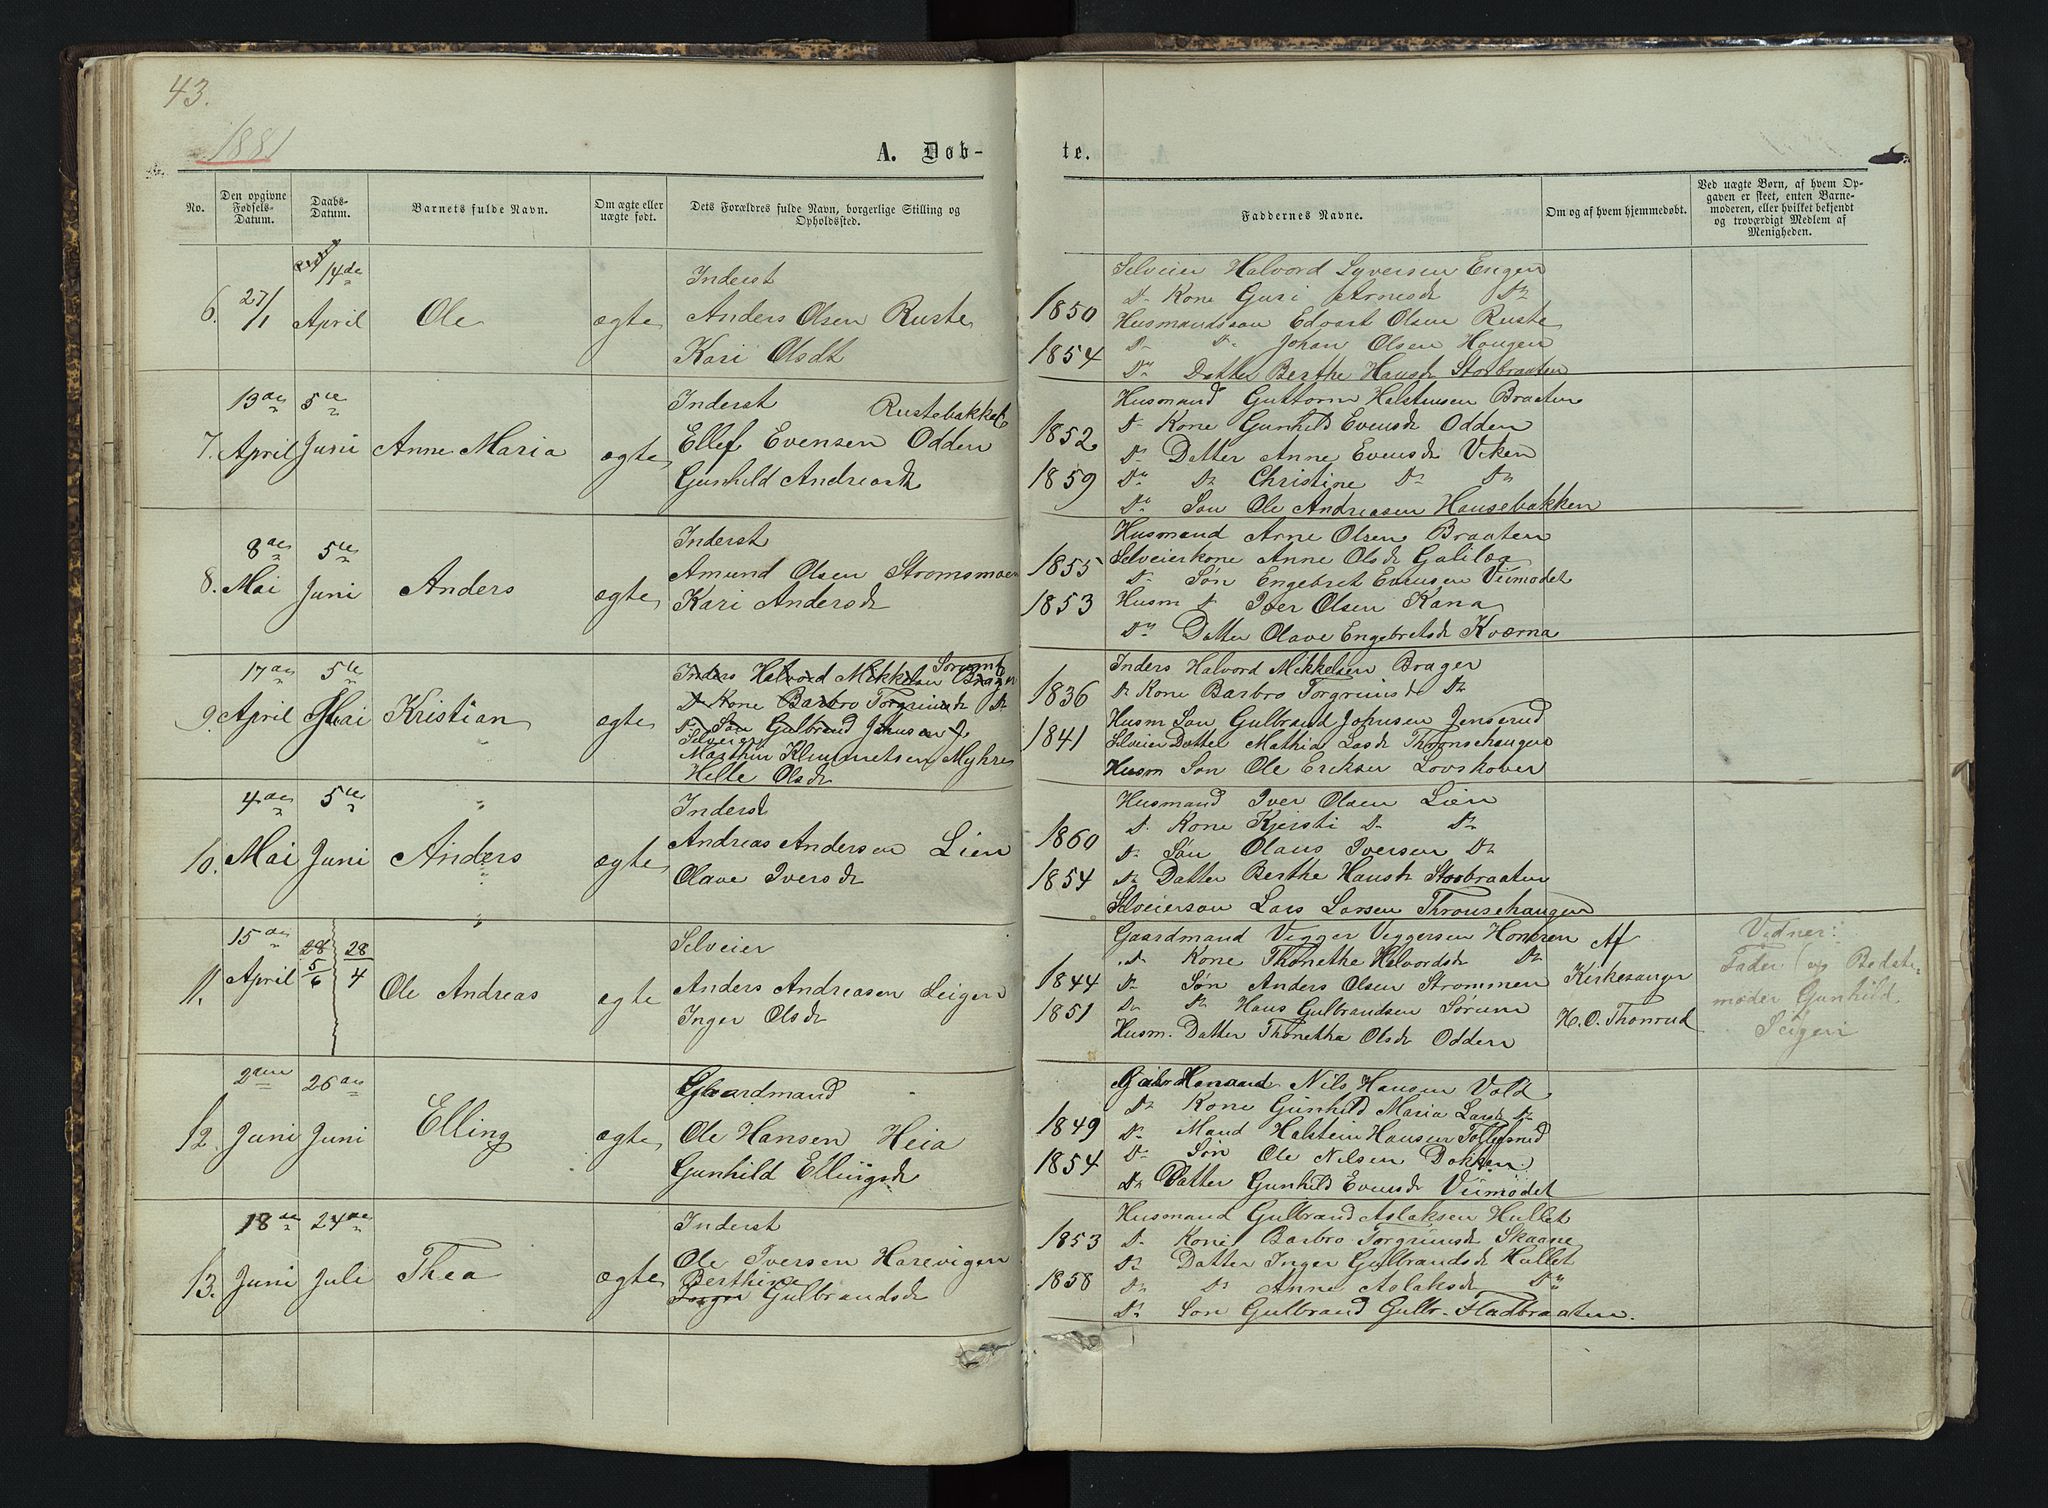 43.
1881
A. Døb-
te.
No.
Den opgivne Fødsels-Datum.
Daabs-Datum.
Barnets fulde Navn.
Om ægte eller uægte født.
Dets Forældres fulde Navn, borgerlige Stilling og Opholdssted.
Faddernes Navne.
Om og af hvem hjemmedøbt.
Ved uægte Børn, af hvem Opgaven er skeet, enten Barnemoderen, eller hvilket bekjendt og troværdigt Medlem af Menigheden.
6. 27/1 14de April Ole ægte
Inderst
Anders Olsen Ruste
Kari Olsdt
1850
1854
Selveier Halvord Syversen Engen
Do Kone Guri Arnesdt Do
Husmandssøn Edvart Olsen Ruste
Do Do Johan Olsen Haugen
Do Datter Berthe Hansdt Storbraaten
7. 13de April 5te Juni Anne Maria ægte
Inderst Rustebakken
Ellef Evensen Odden
Gunhild Andreasdt
1852
1859
Husmand Guttorm Halstensen Braaten
Do Kone Gunhild Evensdt Odden
Do Datter Anne Evensdt Viken
Do Do Christine Do Do
Do Søn Ole Andreasen Hansebakken
8. 8de Mai 5te Juni Anders ægte
Inderst
Amund Olsen Strømsmoen
Kari Andersdt
1855
1853
Husmand Arne Olsen Braaten
Selveierkone Anne Olsdt Galilæa
Do Søn Engebret Evensen Viimødet
Husm Do Iver Olsen Kana
Do Datter Olave Engebretsdt Kværna
9. 17de April 5te Mai Kristian ægte
Inders Halvord Mikkelsen Brager
Do Kone Barbro Torgrimsdt Do
Do Søn Gulbrand Johnsen
Selveier
Marthin Klemmetsen Myhre
Helle Olsdt
1836
1841
Inders Halvord Mikkelsen Brager
Do Kone Barbro Torgrimsdt Do
Husm Søn Gulbrand Johnsen Jenserud
Selveier Datter Mathia Lasdt Thronsehaugen
Husm Søn Ole Eriksen Lovskover
10. 4de Mai 5te Juni Anders ægte
Inderst
Andreas Andersen Lien
Olave Iversdt
1860
1854
Husmand Iver Olsen Lien
Do Kone Kjersti Do Do
Do Søn Olaus Iversen Do
Do Datter Berthe Hansdt Storbraaten
Selveiersøn Lars Larsen Thronsehaugen
11. 15de April 28/5 6 28/4 Ole Andreas ægte
Selveier
Anders Andreasen Seigen
Inger Olsdt
1844
1851
Gaardmand Vigger Viggersen Honkren
Do Kone Thonethe Halvordsdt Do
Do Søn Anders Olsen Strømmen
Do Do Hans Gulbrandsen Sørum
Husm. Datter Thonetha Olsdt Odden
Af
Kirkesanger
H. O. Thonrud
Vidner:
Fader og Bedste-
moder Gunhild
Seigen
12. 2den Juni 26de Juni Elling ægte
Gaardmand
Ole Hansen Heia
Gunhild Ellingsdt
1849
1854
Gaardmand Nils Hansen Vold
Do Kone Gunhild Maria Larsdt Do
Do Mand Halstein Hansen Tollefsrud
Do Søn Ole Nilsen Dokken
Do Datter Gunhild Evensdt Viimødet
13. 18de Juni 24de Juli Thea ægte
Inderst
Ole Iversen Harevigen
Berthine
Inger Gulbrandsdt
1853
1858
Husmand Gulbrand Aslaksen Hullet
Do Kone Barbro Torgrimsdt Skaane
Do Datter Inger Gulbrandsdt Hullet
Do Do Anne Aslaksdt Do
Do Søn Gulbrand Gulbr. Fladbraaten.